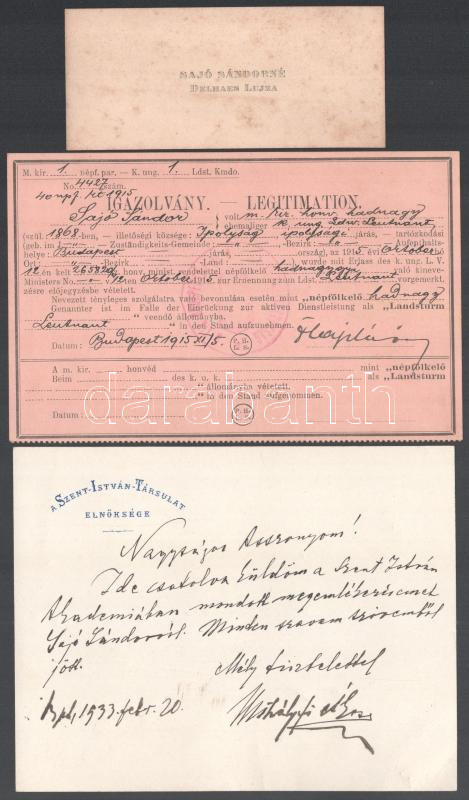 SAJÓ SÁNDORNÉ
DELHAES LUJZA
M. kir. 1. népf. par. — K. ung. 1. Ldst. Kmdo.
No. 4427 szám.
40 népf. 1915
IGAZOLVÁNY. — LEGITIMATION.
Sajó Sándor volt m. kir. honv. hadnagy
ehemaliger k. ung. Ldw. Leutnant
(szül. 1868-ben, — illetőségi községe: Ipolyság ipolysági járás, — tartózkodási
(geb. im — Zuständigkeits-Gemeinde — Bezirk — Aufenthalts-
helye: Budapest járás, — ország), az 1915 évi október hó
Ort — Bezirk — Land wurde mit Erlass des k. ung. L. V.
12 én kelt 265820 sz. honv. minist. rendelettel népfelkelő hadnagy való kineve-
Ministers No. 12 October 1915 zur Ernennung zum Ldst. Leutnant vorgemerkt.
zésre előjegyzésbe vétetett.
Nevezett tényleges szolgálatra való bevonulása esetén mint „népfölkelő hadnagy
Genannter ist im Falle der Einrückung zur aktiven Dienstleistung als „Landsturm
Leutnant “ veendő állományba.
“ in den Stand aufzunehmen.
Datum: Budapest 1915 XI/5.
P. H.
A m. kir. honvéd mint „népfölkelő
Beim des k. u. k. als „Landsturm
“ állományba vétetett.
“ in den Stand aufgenommen.
Datum: P. H.
darabanth
A SZENT-ISTVÁN-TÁRSULAT
ELNÖKSÉGE
Nagyságos Asszonyom!
Ide csatolva küldöm a Szent István
Akadémiában mondott megemlékezésemet
Sajó Sándorról. Minden szavam szívemből
jött.
Mély tisztelettel
Bpt, 1933. febr. 20. Mihályfi Ákos